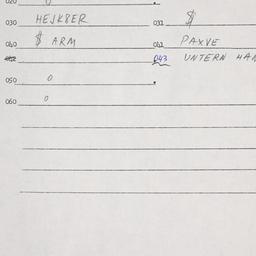 020
030 HEJK8ER 031 $
040 $ ARM 041 PAXVE
043 UNTERN HAN
050 0
060 0